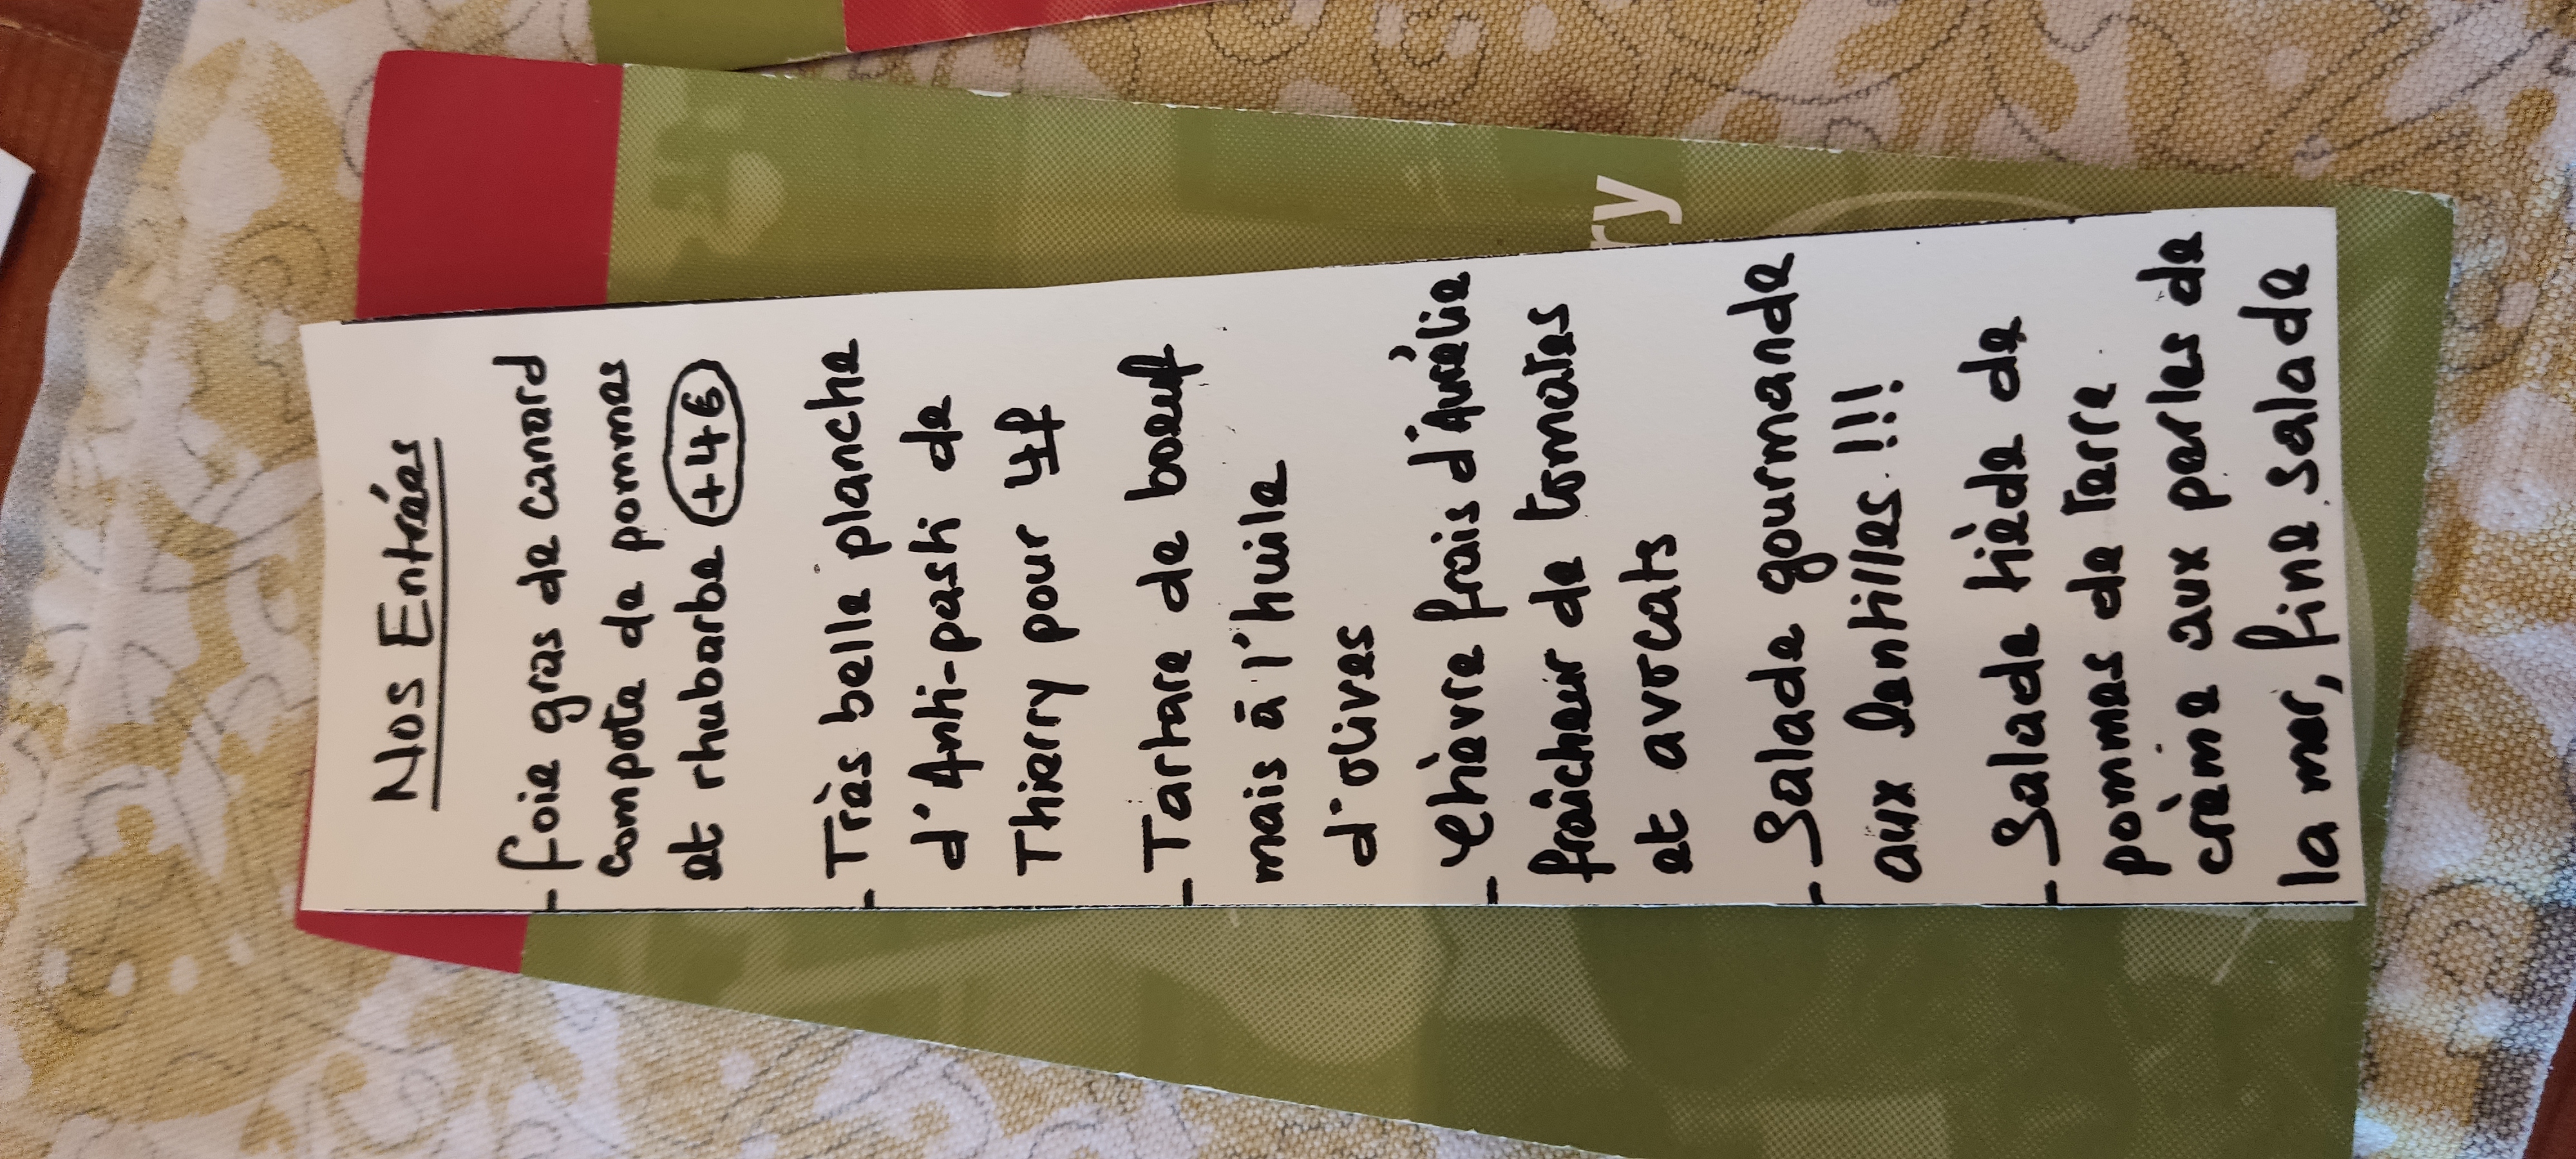 Nos Entrées
- foie gras de canard
compote de pommes
et rhubarbe (+4€)
- Très belle planche
d'Anti-pasti de
Thierry pour 4P
- Tartare de boeuf
mais à l'huile
d'olives
- Chèvre frais d'Aurélie
fraîcheur de tomates
et avocats
- Salade gourmande
aux lentilles !!!
- Salade tiède de
pommes de terre
crème aux perles de
la mer, fine salade
ry